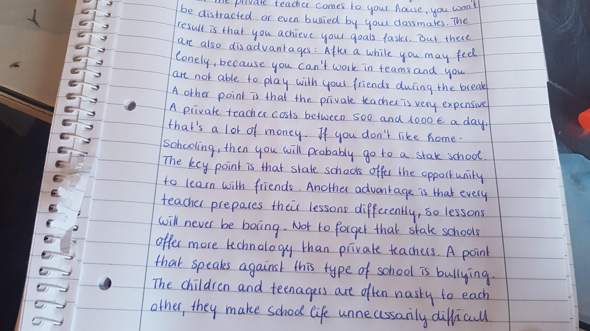 the private teacher comes to your house, you won't
be distracted or even bullied by your classmates. The
result is that you achieve your goals faster. But there
are also disadvantages: After a while you may feel
lonely, because you can't work in teams and you
are not able to play with your friends during the break
A other point is that the private teacher is very expensive
A private teacher costs between 500 and 1000 € a day.
that's a lot of money. If you don't like home-
schooling, then you will probably go to a state school.
The key point is that state schools offer the opportunity
to learn with friends. Another advantage is that every
teacher prepares their lessons differently, so lessons
will never be boring. Not to forget that state schools
offer more technology than private teachers. A point
that speaks against this type of school is bullying.
The children and teenagers are often nasty to each
other, they make school life unnecessarily difficult